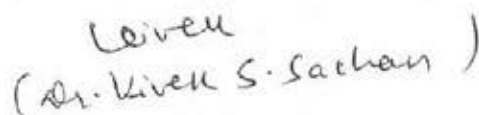 Vivek
(Dr. Vivek S. Sachan)